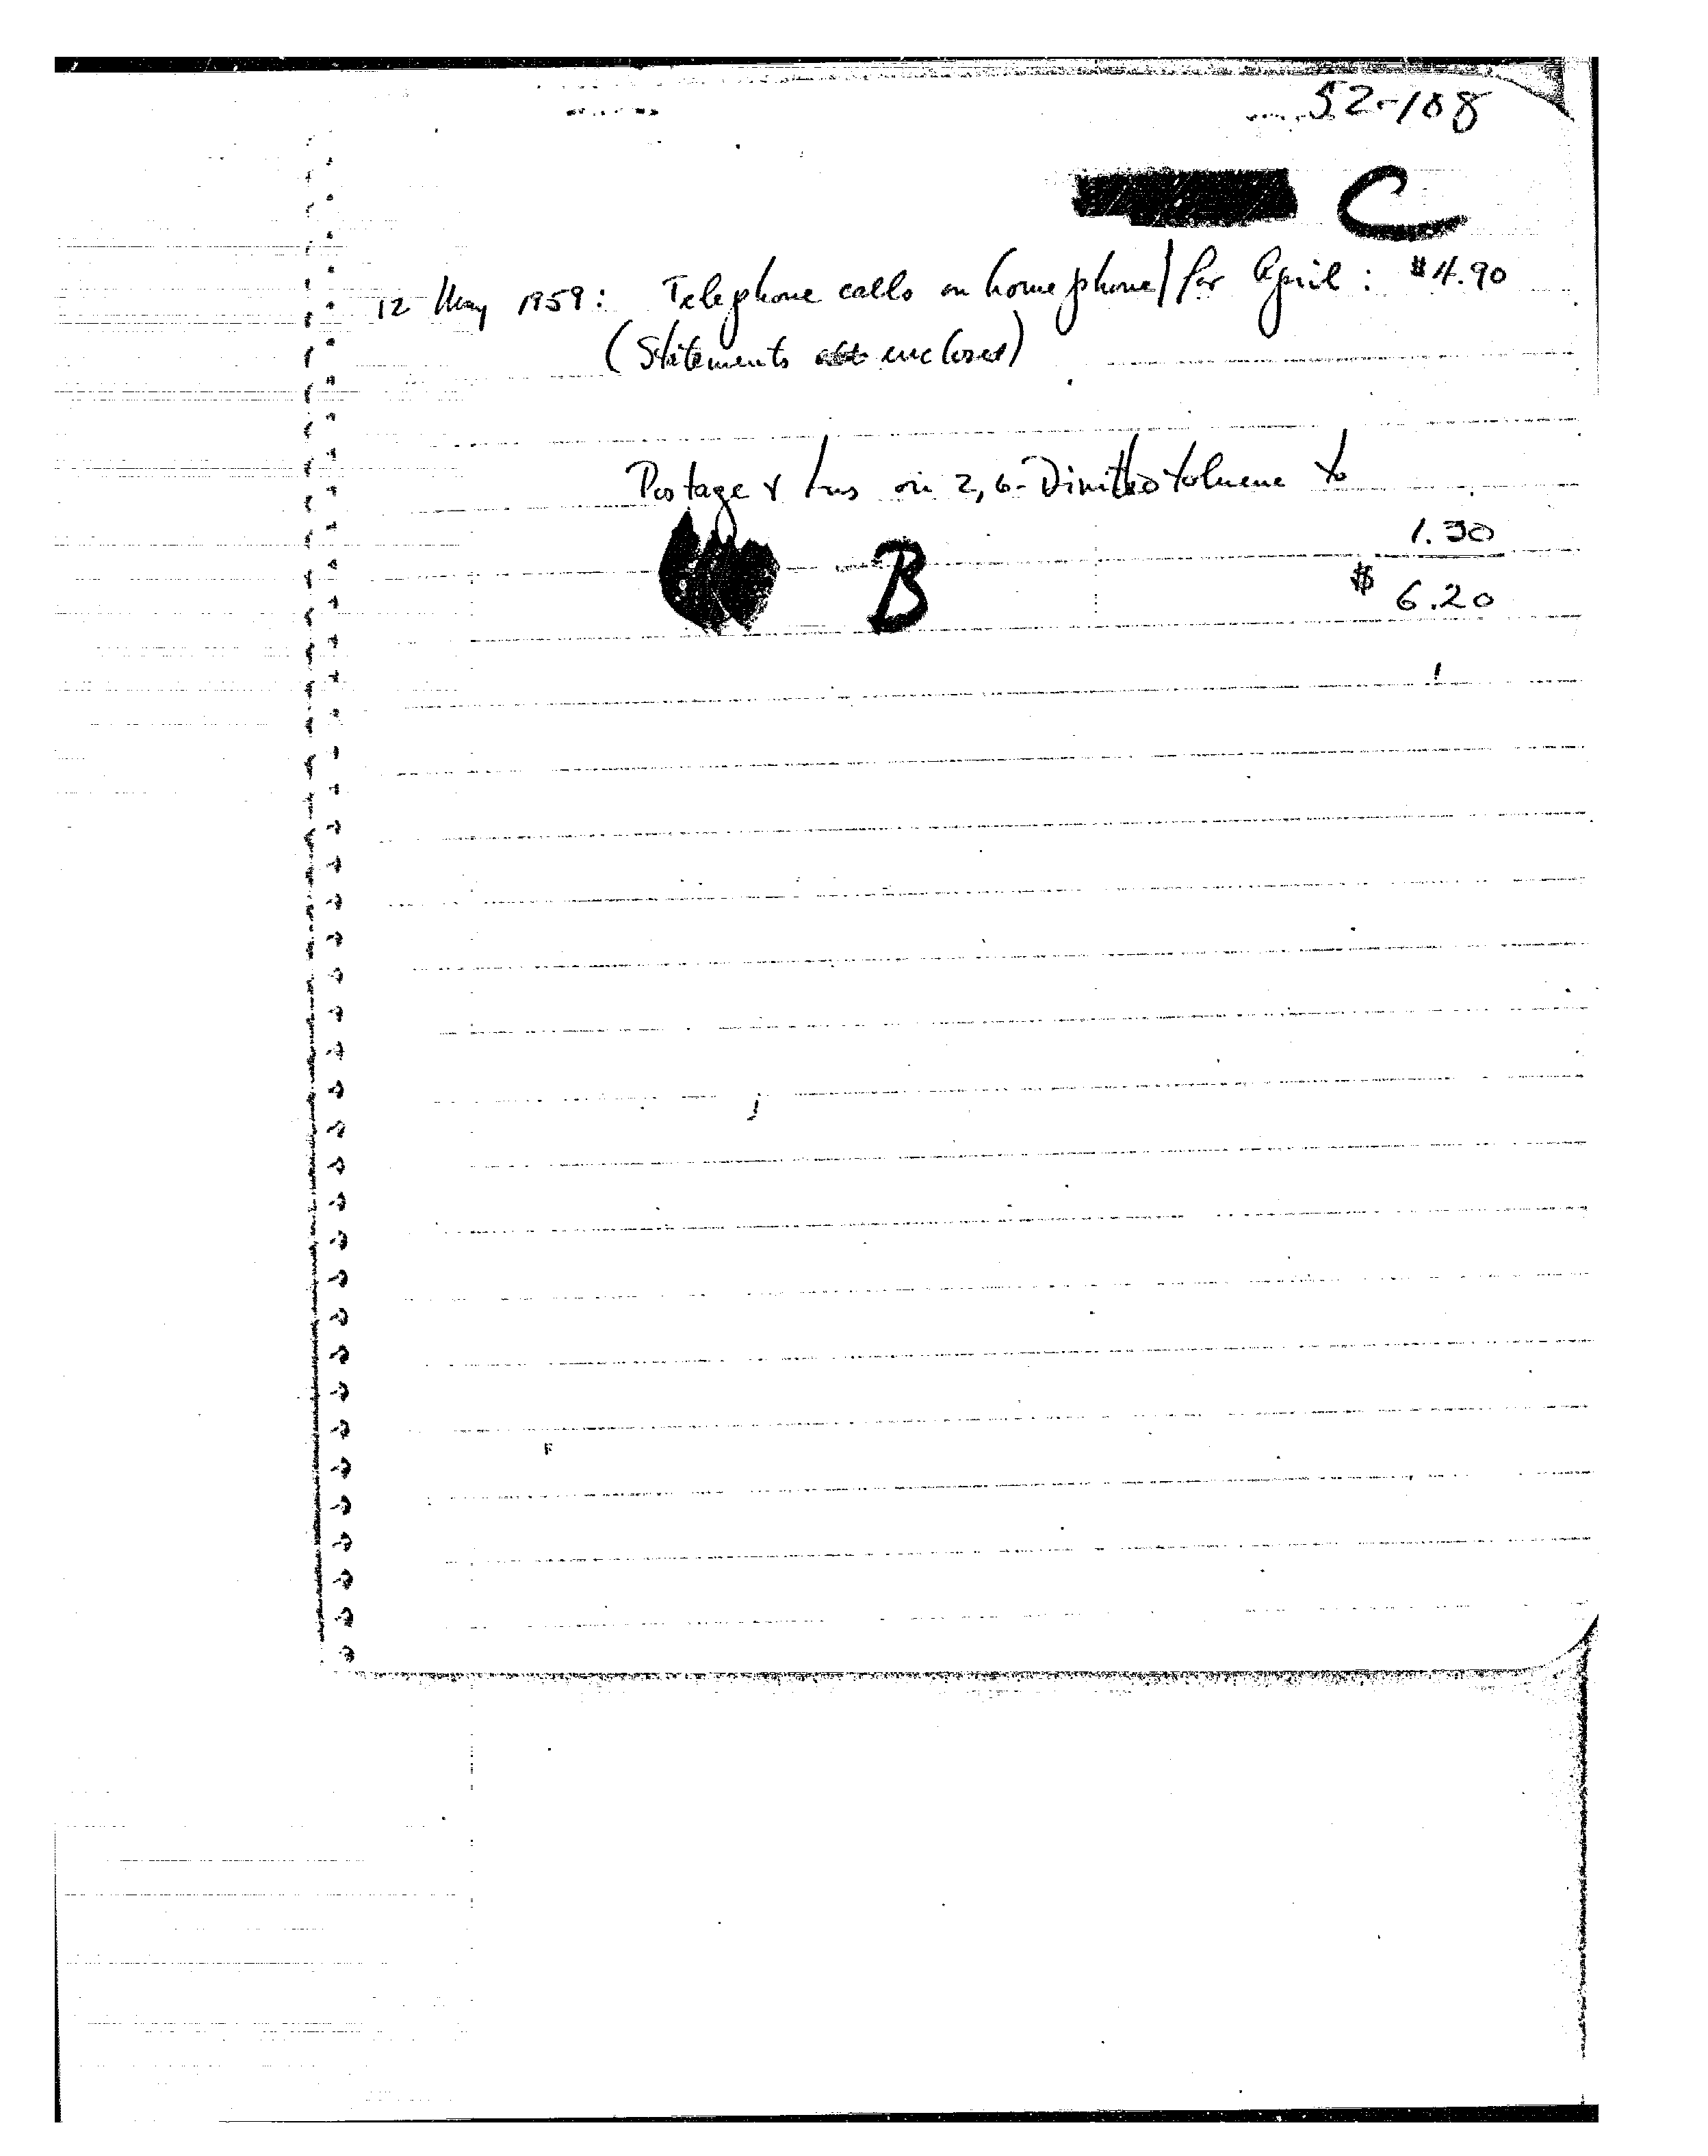 52-108
C
12 May 1959: Telephone calls on home phone/for April: $4.90
(Statements enclosed)
Postage & Ins on 2,6-Dinitrotoluene to
1.30
B
$ 6.20